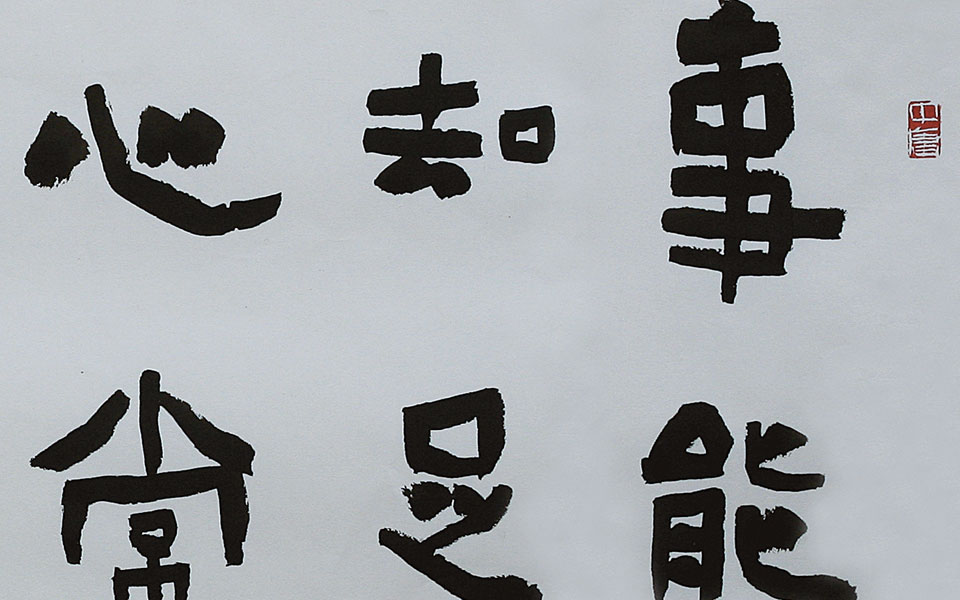 事能
知足
心常